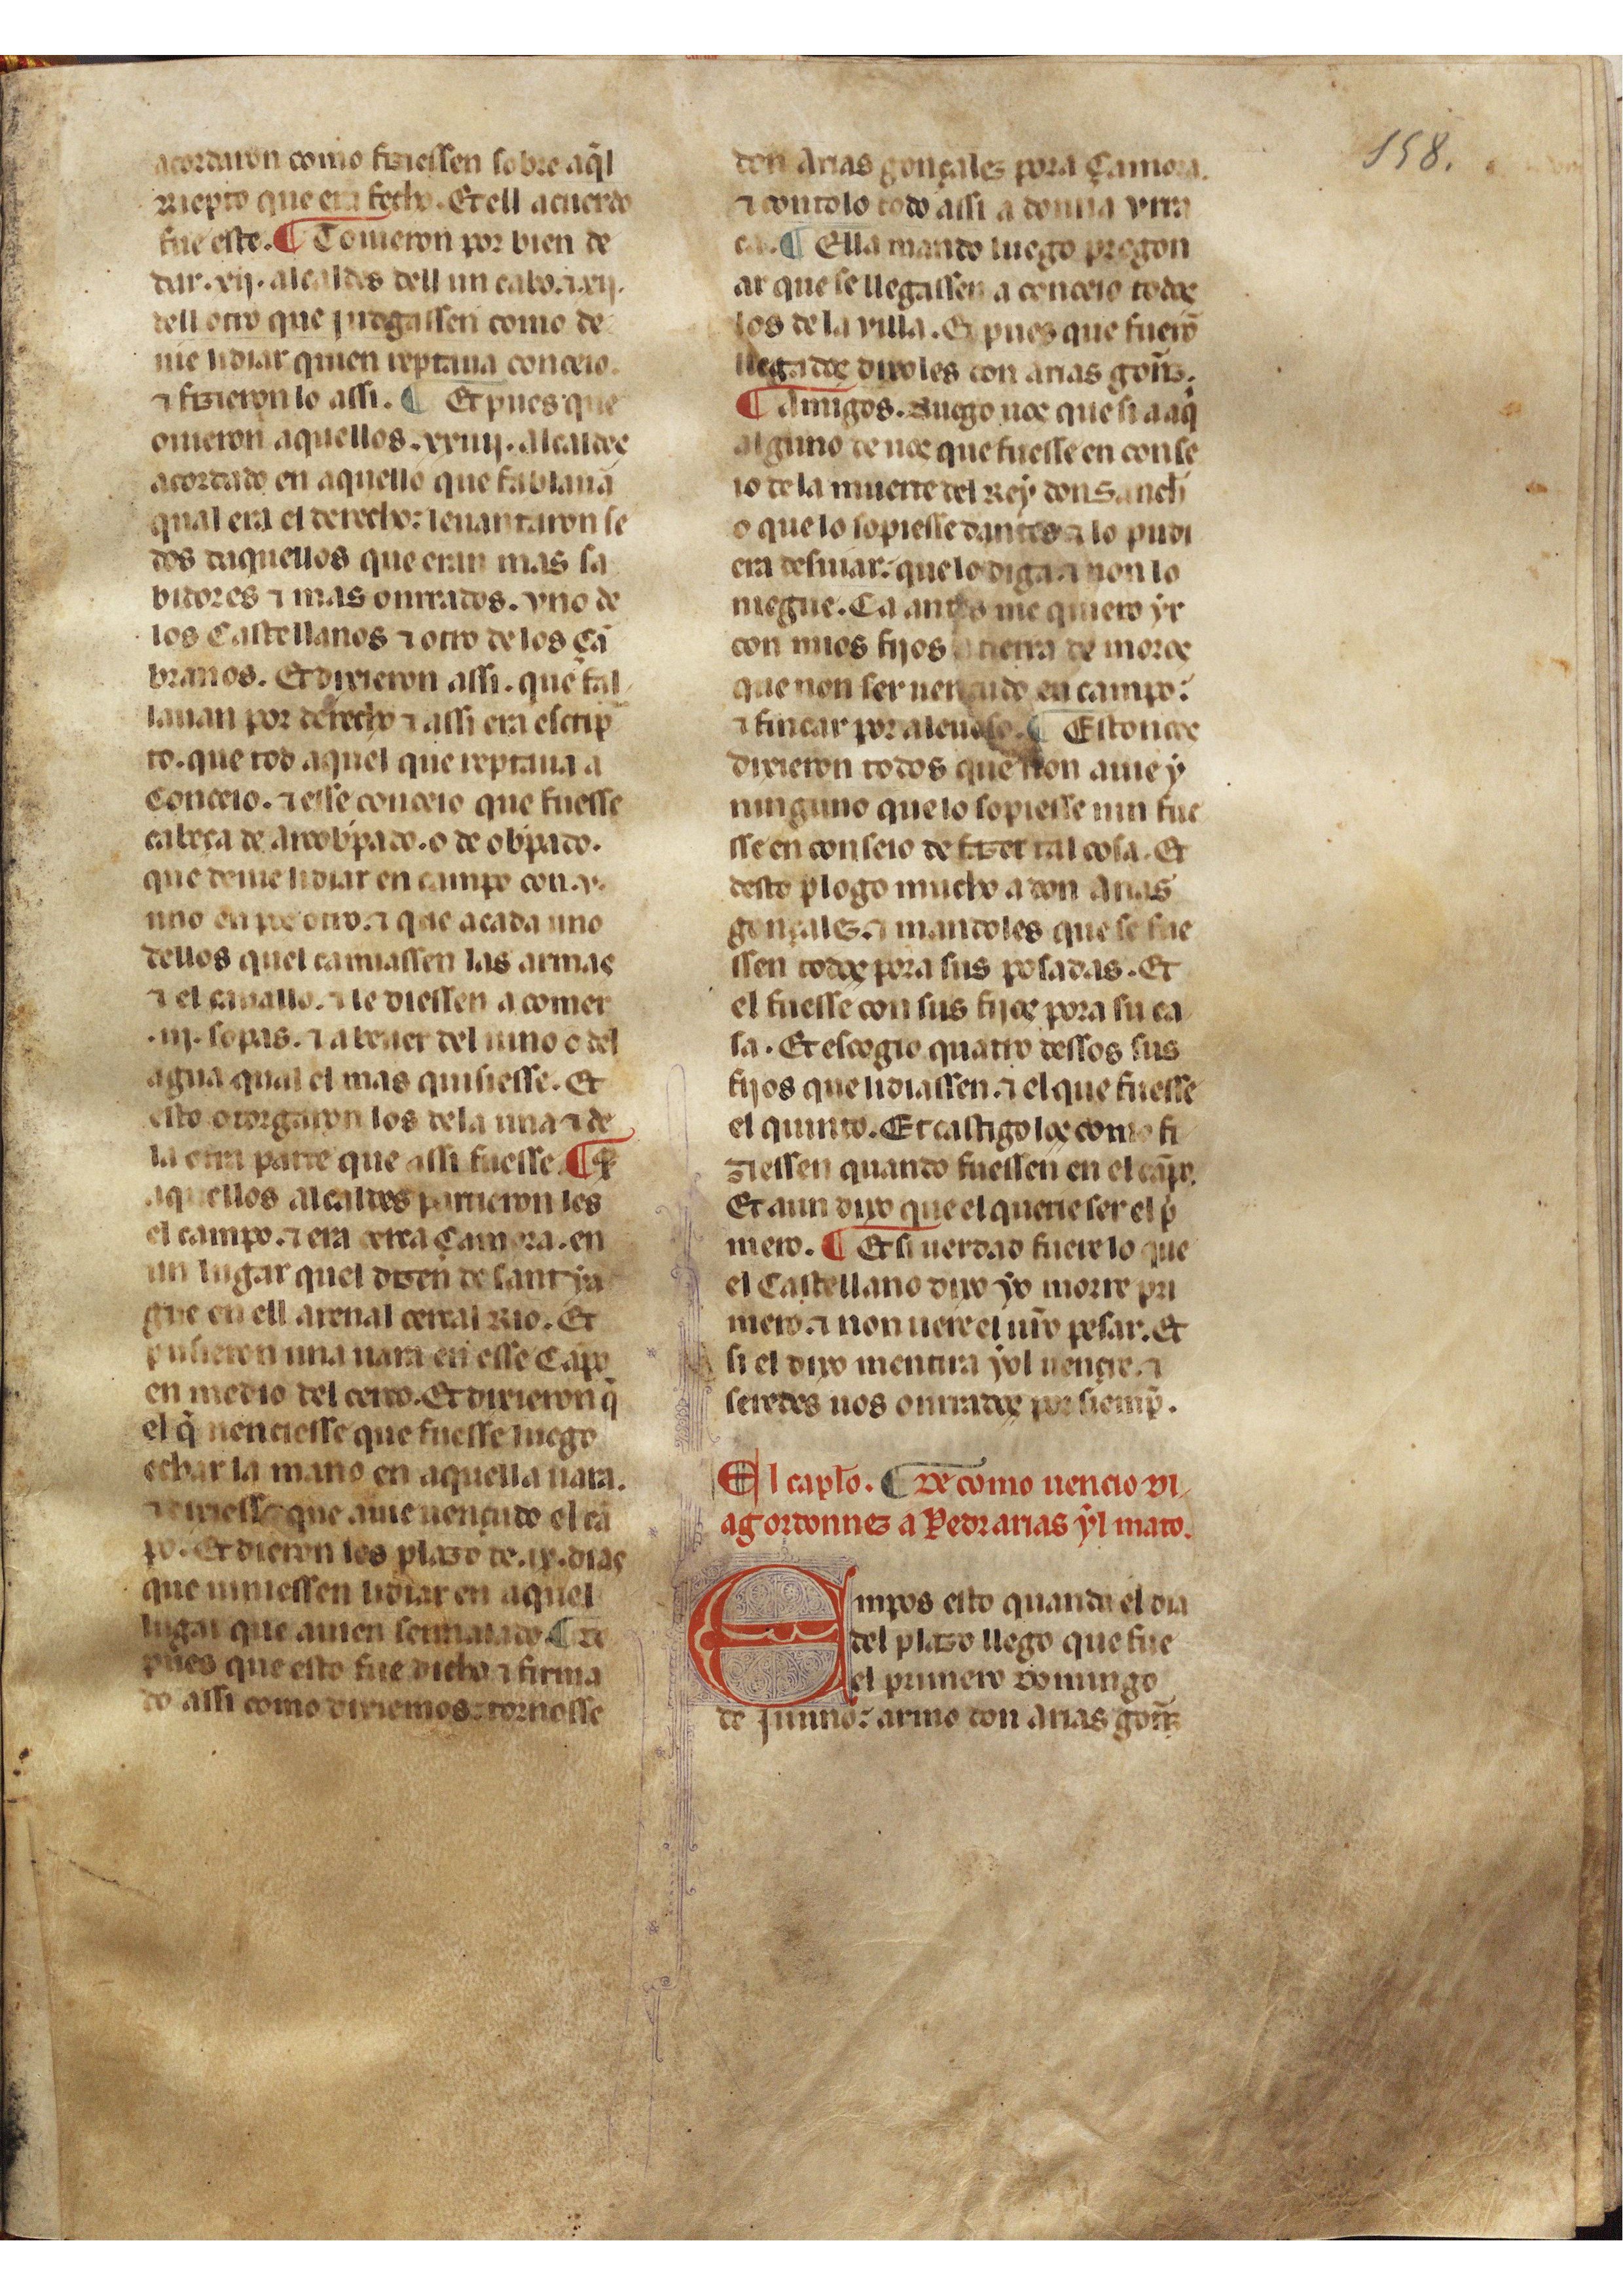 158.
acordaron como fiziessen sobre aq̃l
Riepto que era fecho. Et ell acuerdo
fue este. ¶ Touieron por bien de
dar .xij. alcaldes dell un cabo. ⁊ .xij.
dell otro que judgassen como de
uie lidiar quien reptaua conceio.
⁊ fizieron lo assi. ¶ Et pues que
ouieron aquellos .xxiiij. alcaldes
acordado en aquello que fablauã
qual era el derecho: leuantaron se
dos daquellos que eran mas sa
bidores ⁊ mas onrrados. uno de
los Castellanos ⁊ otro de los Ça
branos. Et dixieron assi. que fal
lauan por derecho ⁊ assi era escrip
to. que tod aquel que reptaua a
Conceio. ⁊ esse conceio que fuesse
cabeça de arçobp̃ado. o de obp̃ado.
que deuie lidiar en campo con .v.
uno en pos otro. ⁊ que a cada uno
dellos quel camiassen las armas
⁊ el cauallo. ⁊ le diessen a comer
.iij. sopas. ⁊ a beuer del uino o del
agua qual el mas quisiesse. Et
esto otorgaron los de la una ⁊ de
la otra parte que assi fuesse. ¶ Et
aquellos alcaldes partieron les
el campo. ⁊ era cerca Çamora. en
un lugar quel dizen de sant ya
gue en ell arenal cercal Rio. Et
pusieron una uara en esse Cãpo
en medio del cerco. Et dixieron q̃
el q̃ uenciesse que fuesse luego
echar la mano en aquella uara.
⁊ dixiesse que auie uençudo el cã
po. Et dieron les plazo de .ix. dias
que uiniessen lidiar en aquel
lugar que auien sennalado. ¶ De
pues que esto fue dicho ⁊ firma
do assi como dixiemos: tornosse
don Arias gonçalez pora Çamora.
⁊ contolo todo assi a donna Vrra
ca. ¶ Ella mando luego pregon
ar que se llegassen a conceio todos
los de la uilla. Et pues que fuerõ
llegados dixoles don arias gonz̃.
¶ Amigos. Ruego uos que si a aq̃
alguno de uos que fuesse en conse
io de la muerte del Rey don Sanch
o que lo sopiesse dantes ⁊ lo pudi
era desuiar: que lo diga ⁊ non lo
niegue. Ca antes me quiero yr
con mios fijos a tierra de moros
que non ser uençudo en campo:
⁊ fincar por aleuoso. ¶ Estonces
dixieron todos que non auie y
ninguno que lo sopiesse nin fue
sse en conseio de fazer tal cosa. Et
desto plogo mucho a don Arias
gonçalez. ⁊ mandoles que se fue
ssen todos pora sus posadas. Et
el fuesse con sus fijos pora su ca
sa. Et escogio quatro dessos sus
fijos que lidiassen. ⁊ el que fuesse
el quinto. Et castigolos como fi
ziessen quando fuessen en el cãpo.
Et aun dixo que el querie ser el p̃
mero. ¶ Et si uerdad fuere lo que
el Castellano dixo yo morre pri
mero. ⁊ non uere el ur̃o pesar. Et
si el dixo mentira yol uençre. ⁊
seredes uos onrrados por siemp̃.
El capl̃o. ¶ De como uencio Di
ag ordonnez a Pedrarias yl mato.
Empos esto quando el dia
del plazo llego que fue
el primero domingo
de Junnio: armo don Arias gonz̃